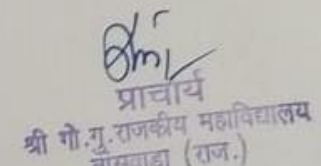 प्राचार्य
श्री गो.गु. राजकीय महाविद्यालय
बाँसवाड़ा (राज.)